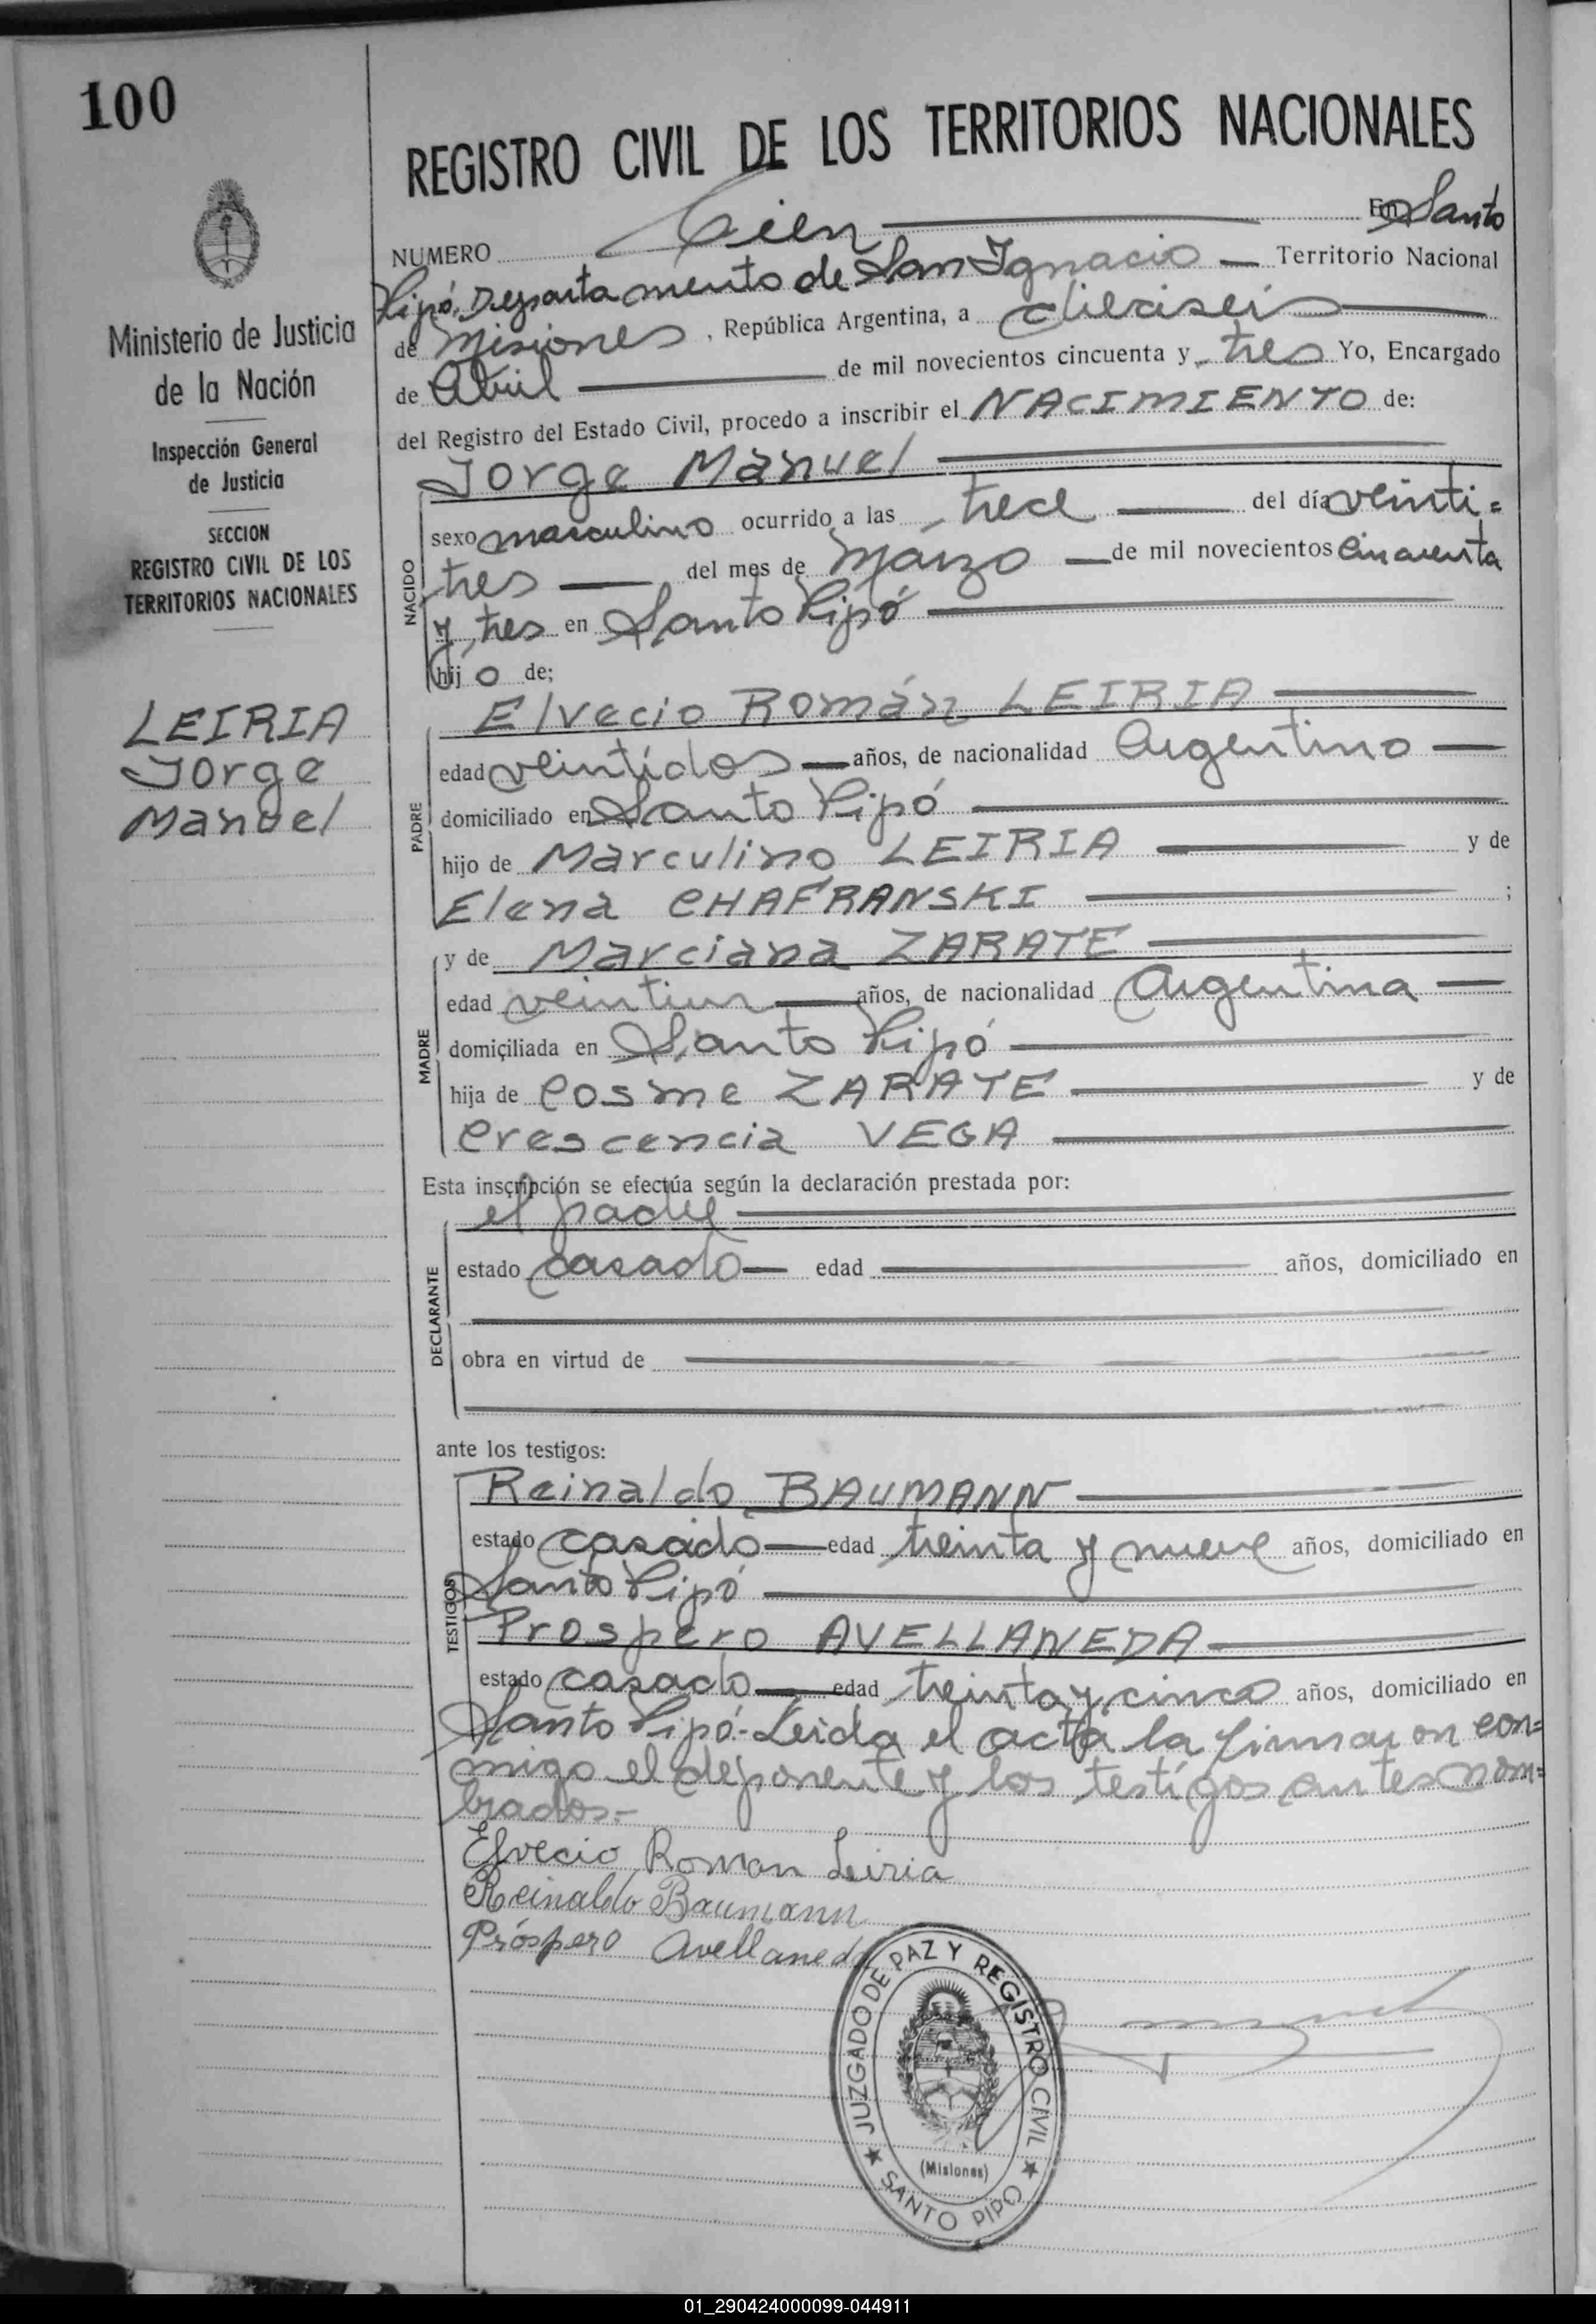 100
REGISTRO CIVIL DE LOS TERRITORIOS NACIONALES
NUMERO Cien En Santo
Pipó, Departamento de San Ignacio Territorio Nacional
de Misiones, República Argentina, a dieciseis
de Abril de mil novecientos cincuenta y tres Yo, Encargado
del Registro del Estado Civil, procedo a inscribir el NACIMIENTO de:
Jorge Manuel
NACIDO
sexo masculino ocurrido a las trece del día veinti=
tres del mes de Marzo de mil novecientos cincuenta
y tres en Santo Pipó
hijo de;
Elvecio Román LEIRIA
PADRE
edad veintidos años, de nacionalidad Argentino
domiciliado en Santo Pipó
hijo de Marculino LEIRIA y de
Elena CHAFRANSKI ;
y de Marciana ZARATE
MADRE
edad veintiun años, de nacionalidad Argentina
domiciliada en Santo Pipó
hija de Cosme ZARATE y de
Crescencia VEGA
Esta inscripción se efectúa según la declaración prestada por:
el padre
DECLARANTE
estado casado edad años, domiciliado en
obra en virtud de
ante los testigos:
Reinaldo BAUMANN
TESTIGOS
estado casado edad treinta y nueve años, domiciliado en
Santo Pipó
Prospero AVELLANEDA
estado casado edad treinta y cinco años, domiciliado en
Santo Pipó.- Leida el acta la firmaron con=
migo el deponente y los testigos antes nom=
brados.-
Elvecio Roman Leiria
Reinaldo Baumann
Próspero Avellaneda
JUZGADO DE PAZ Y REGISTRO CIVIL
(Misiones)
SANTO PIPO
Ministerio de Justicia
de la Nación
Inspección General
de Justicia
SECCION
REGISTRO CIVIL DE LOS
TERRITORIOS NACIONALES
LEIRIA
Jorge
Manuel
01_290424000099-044911